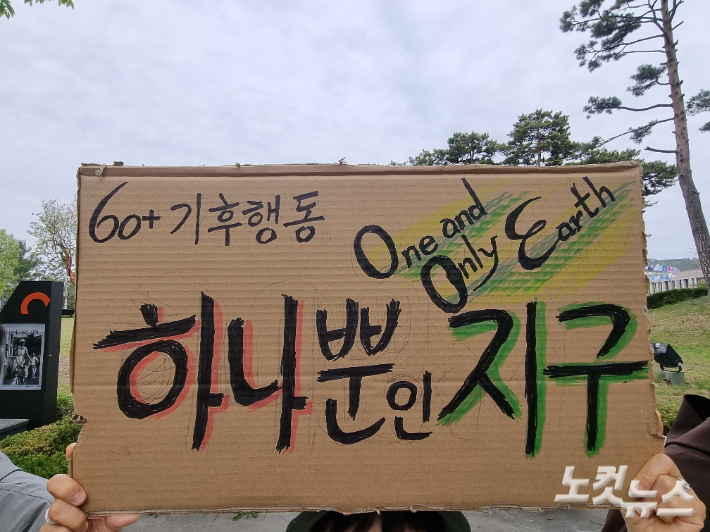 60+ 기후행동
One and
Only Earth
하나뿐인 지구
노컷뉴스